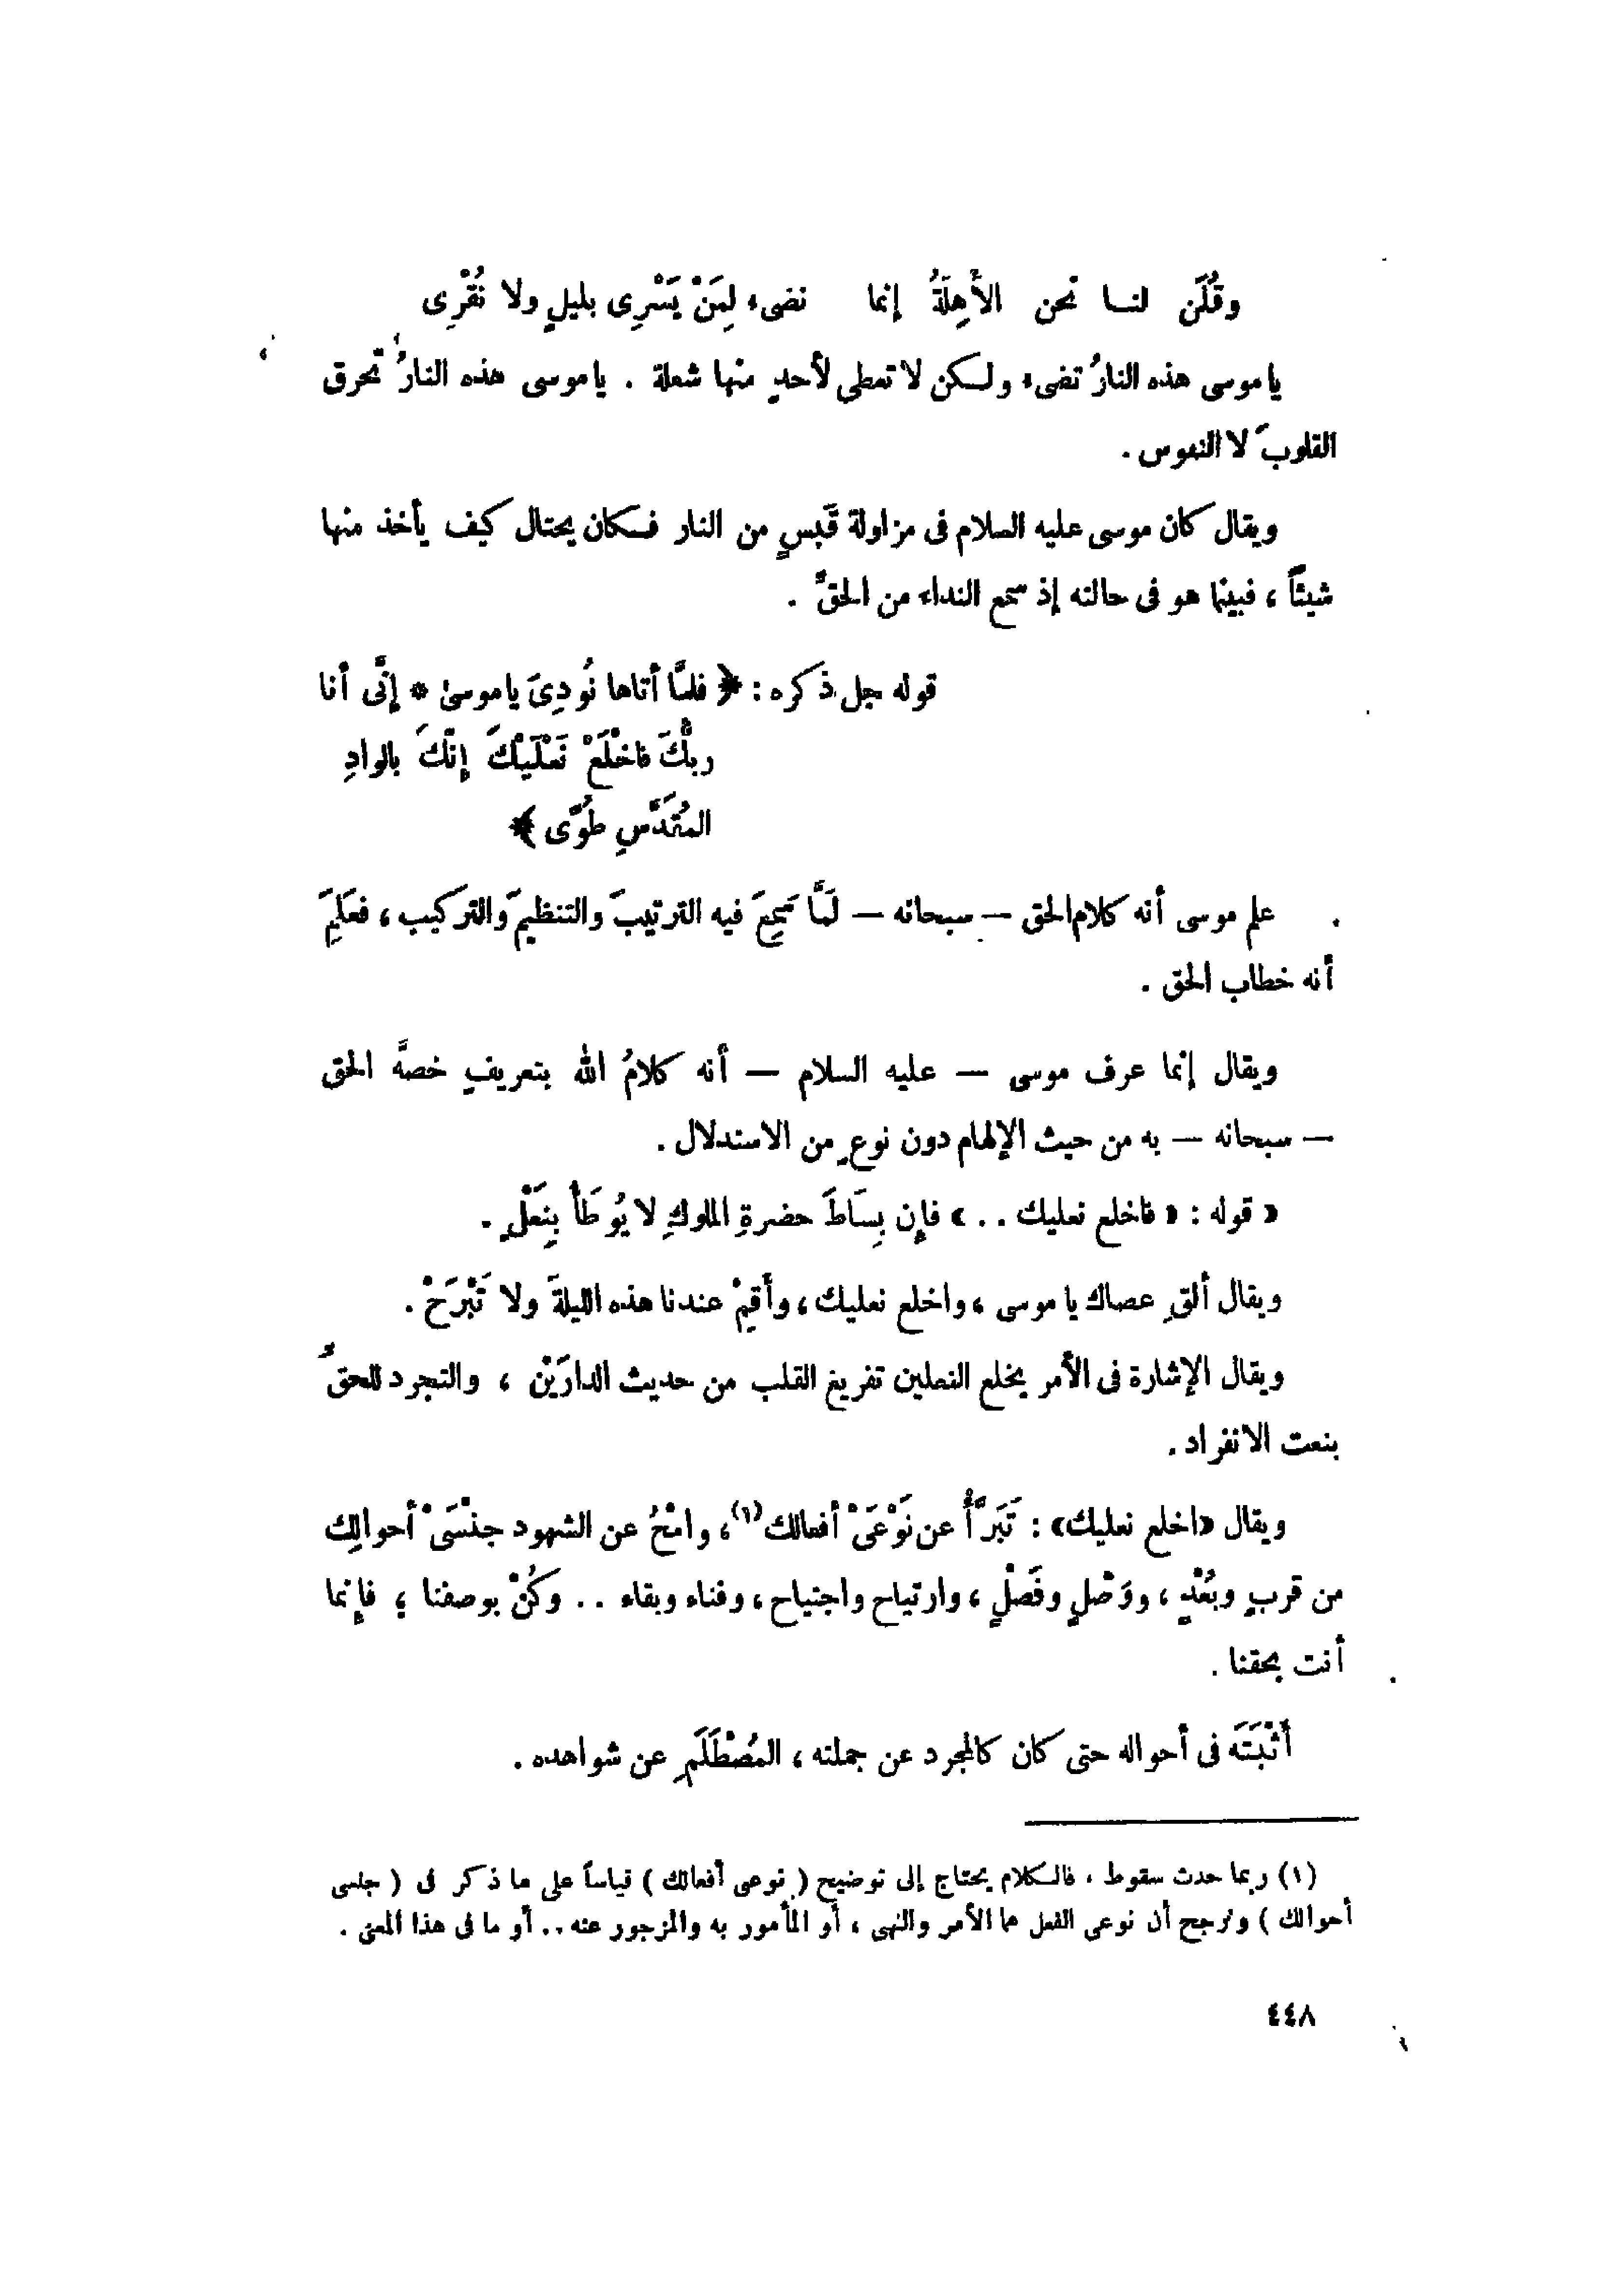 وقُلْنَ لنا نحن الأَهِلَّةُ إنما نضىء لِمَنْ يَسْرِى بليلٍ ولا نُقْرِى
يا موسى هذه النارُ تضىء ولكن لا تعطى لأحدٍ منها شعلة . يا موسى هذه النارُ تحرق
القلوبَ لا النفوس .
ويقال كان موسى عليه السلام فى مزاولة قَبَسٍ من النار فكان يحتال كيف يأخذ منها
شيئاً ، فبينما هو فى حالته إذ سمع النداء من الحقِّ .
قوله جل ذكره : ﴿ فلمَّا أتاها نُودِىَ يا موسىٰ * إنِّى أنا
ربُّكَ فاخْلَعْ نَعْلَيْكَ إنَّكَ بالوادِ
المُقَدَّسِ طُوًى ﴾
علم موسى أنه كلام الحق — سبحانه — لَمَّا سَمِعَ فيه الترتيبَ والتنظيمَ والتركيب ، فعَلِمَ
أنه خطاب الحق .
ويقال إنما عرف موسى — عليه السلام — أنه كلامُ الله بتعريفٍ خصَّه الحق
— سبحانه — به من حيث الإلهام دون نوعٍ من الاستدلال .
« قوله : « فاخلع نعليك . . » فإن بِسَاطَ حضرةِ الملوكِ لا يُوطَأ بِنَعْلٍ .
ويقال ألقِ عصاك يا موسى ، واخلع نعليك ، وأَقِمْ عندنا هذه الليلةَ ولا تَبْرَحْ .
ويقال الإشارة فى الأمر بخلع النعلين تفريغ القلب من حديث الدارَيْن ، والتجرد للحقِّ
بنعت الانفراد .
ويقال «اخلع نعليك» : تَبَرَّأْ عن نَوْعَىْ أفعالك(١) ، وامْحُ عن الشهود جنْسَىْ أحوالِك
من قربٍ وبُعْدٍ ، ووَصْلٍ وفَصْلٍ ، وارتياح واجتياح ، وفناء وبقاء . . وكُنْ بوصفنا ؛ فإنما
أنت بحقنا .
أَثْبَتَه فى أحواله حتى كان كالمجرد عن جملته ، المُصْطَلَمِ عن شواهده .
(١) ربما حدث سقوط ، فالكلام يحتاج إلى توضيح ( نوعى أفعالك ) قياساً على ما ذكر فى ( جنسى
أحوالك ) ونرجح أن نوعى الفعل هما الأمر والنهى ، أو المأمور به والمزجور عنه .. أو ما فى هذا المعنى .
٤٤٨